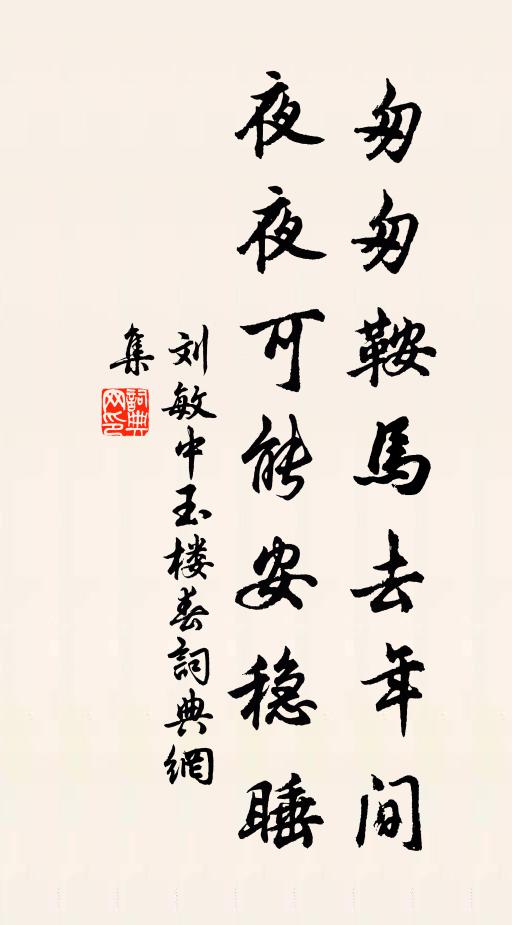 匆匆鞍馬去年间
夜夜可能安稳睡
刘敏中玉楼春詞典網
集
詞典
网印